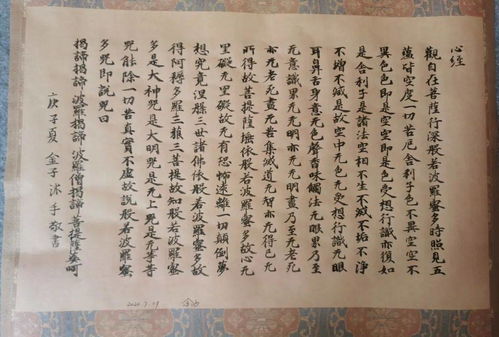 心經
觀自在菩薩行深般若波羅蜜多時照見五
蘊皆空度一切苦厄舍利子色不異空空不
異色色即是空空即是色受想行識亦復如
是舍利子是諸法空相不生不滅不垢不淨
不增不減是故空中无色无受想行識无眼
耳鼻舌身意无色聲香味觸法无眼界乃至
无意識界无无明亦无无明盡乃至无老死
亦无老死盡无苦集滅道无智亦无得以无
所得故菩提薩埵依般若波羅蜜多故心无
罣礙无罣礙故无有恐怖遠離一切顛倒夢
想究竟涅槃三世諸佛依般若波羅蜜多故
得阿耨多羅三藐三菩提故知般若波羅蜜
多是大神咒是大明咒是无上咒是无等等
咒能除一切苦真實不虛故說般若波羅蜜
多咒即說咒曰
揭諦揭諦 波羅揭諦 波羅僧揭諦 菩提薩婆呵
庚子夏 金子沐手敬書
2020.7.19